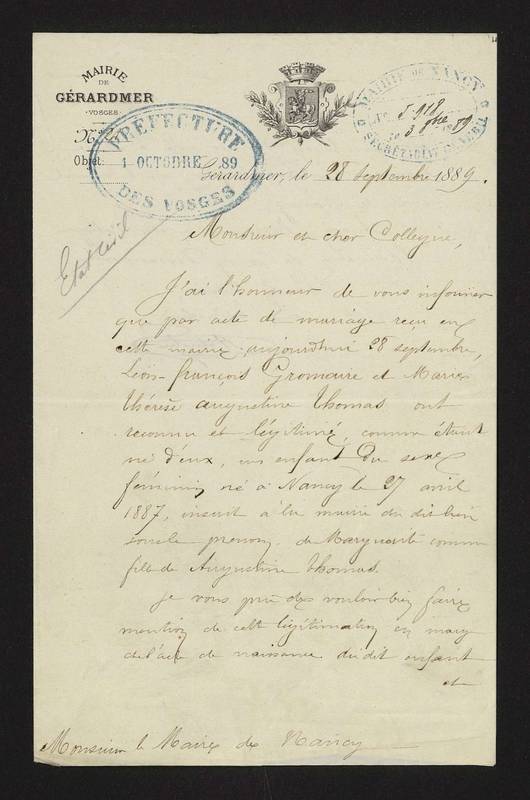 MAIRIE
DE
GÉRARDMER
VOSGES
N°
Objet:
PRÉFECTURE
1 OCTOBRE 89
DES VOSGES
MAIRIE DE NANCY
N° 5918
3 8bre 89
SECRÉTARIAT GÉNÉRAL
Gérardmer, le 28 Septembre 1889.
Etat civil
Monsieur et cher Collègue,
J'ai l'honneur de vous informer
que par acte de mariage reçu en
cette mairie aujourd'hui 28 septembre,
Léon-françois Gromaire et Marie
thérèse augustine thomas ont
reconnu et légitimé, comme étant
né d'eux, un enfant du sexe
féminin, né à Nancy le 27 avril
1887, inscrit à la mairie du dit lieu
sous le prenom de Marguerite comme
fille de Augustine thomas.
Je vous prie de vouloir bien faire
mention de cette légitimation en marge
de l'acte de naissance du dit enfant
et
Monsieur le Maire de Nancy